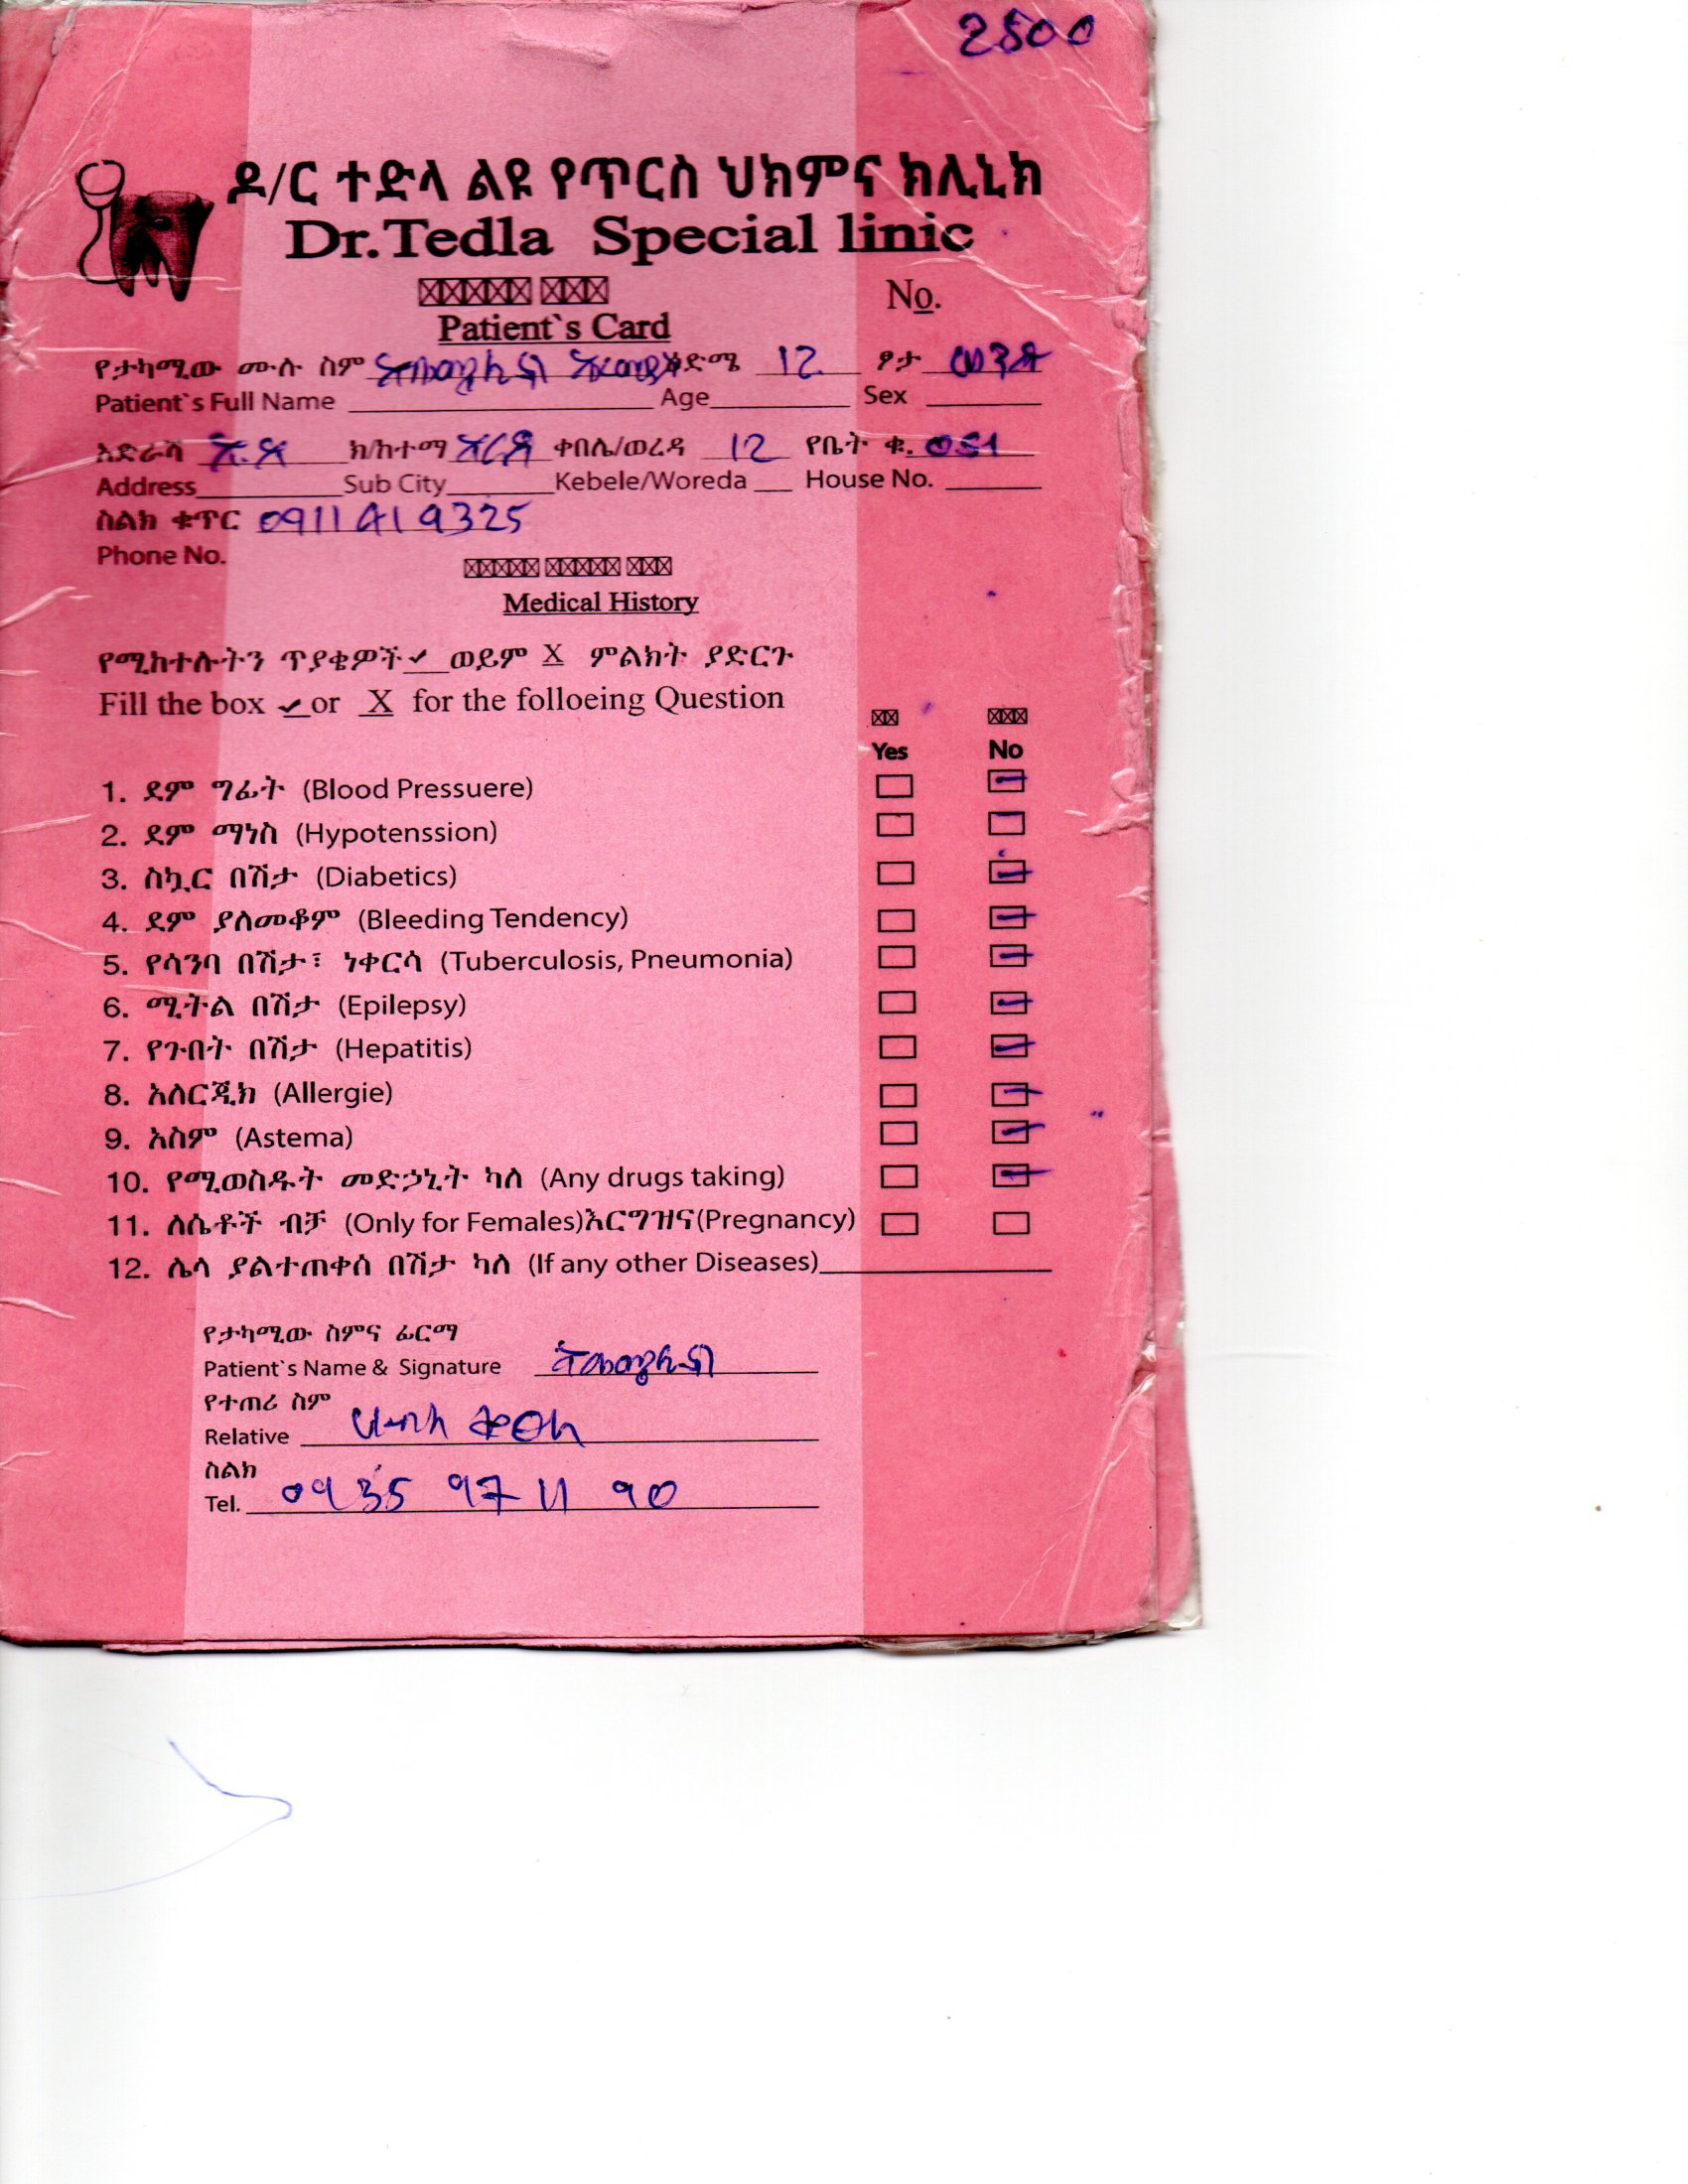 2500
ዶ/ር ተድላ ልዩ የጥርስ ህክምና ክሊኒክ
Dr.Tedla Special linic
No.
Patient`s Card
የታካሚው ሙሉ ስም ዕድሜ 12 ፆታ ወንድ
Patient`s Full Name Age Sex
አድራሻ አ.አ ክ/ከተማ ቀበሌ/ወረዳ 12 የቤት ቁ.
Address Sub City Kebele/Woreda House No.
ስልክ ቁጥር 0911419325
Phone No.
Medical History
የሚከተሉትን ጥያቄዎች ✓ ወይም X ምልክት ያድርጉ
Fill the box ✓ or X for the folloeing Question
Yes No
1. ደም ግፊት (Blood Pressuere)
2. ደም ማነስ (Hypotenssion)
3. ስኳር በሽታ (Diabetics)
4. ደም ያለመቆም (Bleeding Tendency)
5. የሳንባ በሽታ፣ ነቀርሳ (Tuberculosis, Pneumonia)
6. ሚትል በሽታ (Epilepsy)
7. የጉበት በሽታ (Hepatitis)
8. አለርጂክ (Allergie)
9. አስም (Astema)
10. የሚወስዱት መድኃኒት ካለ (Any drugs taking)
11. ለሴቶች ብቻ (Only for Females)እርግዝና(Pregnancy)
12. ሌላ ያልተጠቀሰ በሽታ ካለ (If any other Diseases)
የታካሚው ስምና ፊርማ
Patient`s Name & Signature
የተጠሪ ስም
Relative
ስልክ
Tel. 0935 97 11 90